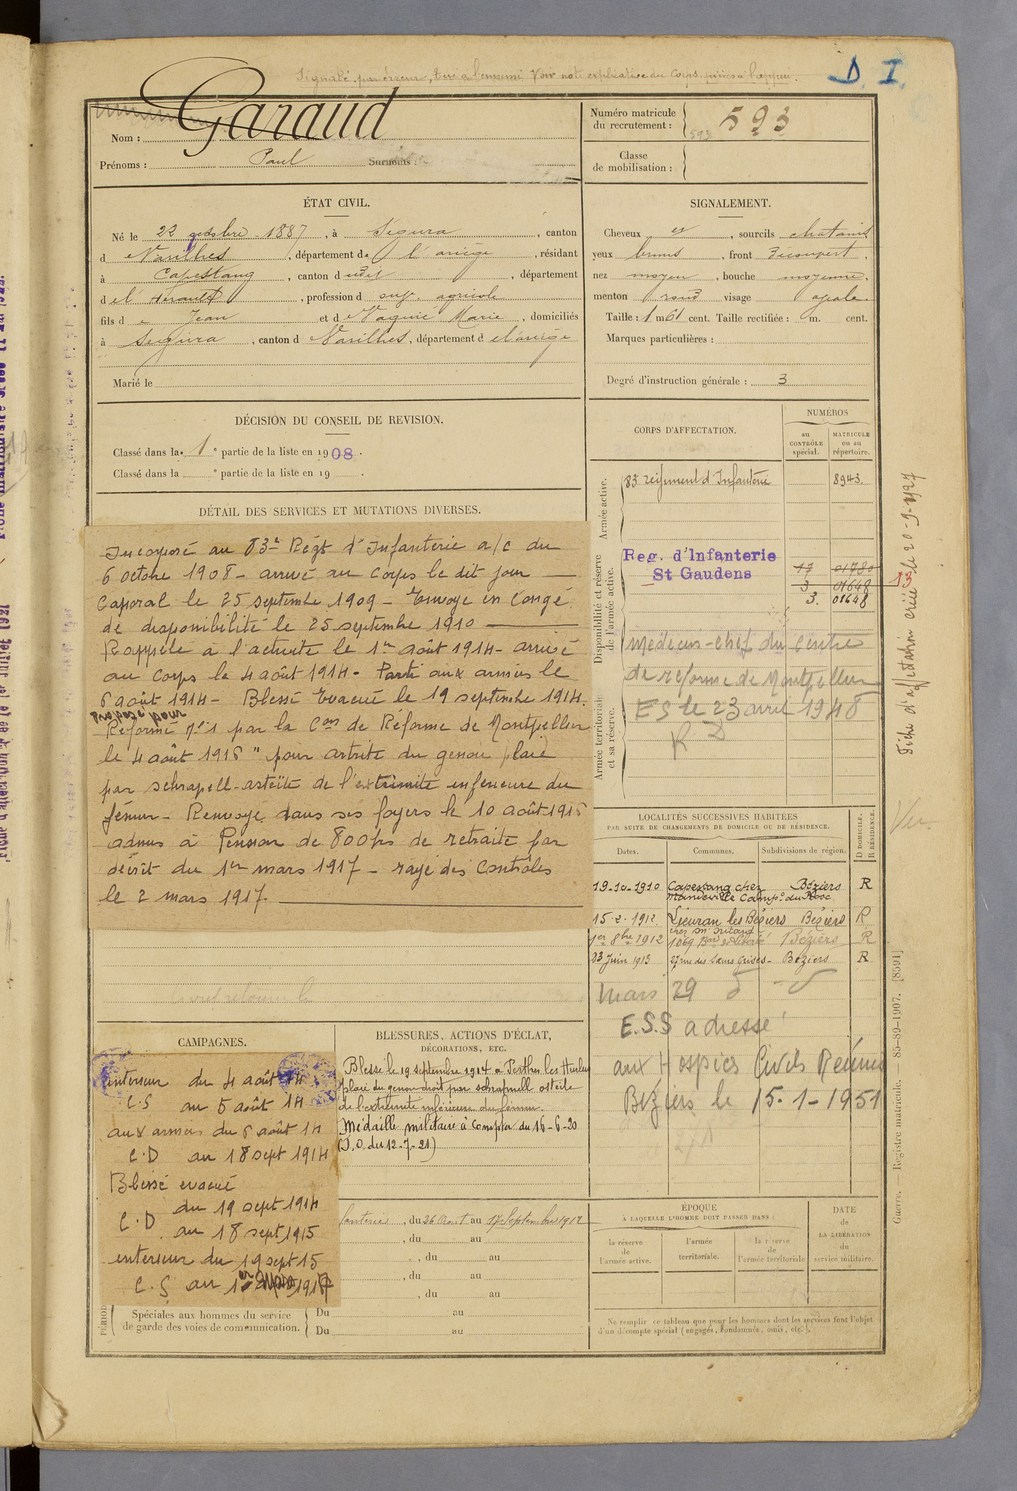 Signalé par erreur, Voir note explicative du Corps
D. I.
Nom : Garaud
Prénoms : Paul Surnoms :
Numéro matricule du recrutement : 593
593
Classe de mobilisation :
ÉTAT CIVIL.
Né le 22 octobre 1887, à Ségura, canton
d Varilhes, département de l'ariège, résidant
à Capestang, canton dudit, département
de l'Hérault, profession d ouv. agricole
fils d e Jean et d e Vaquié Marie, domiciliés
à Segura, canton d Varilhes, département d el'ariège
Marié le
SIGNALEMENT.
Cheveux et, sourcils chatains
yeux bruns, front découvert.
nez moyen, bouche moyenne.
menton rond visage ovale.
Taille : 1 m 61 cent. Taille rectifiée : m. cent.
Marques particulières :
Degré d'instruction générale : 3
DÉCISION DU CONSEIL DE REVISION.
Classé dans la 1e partie de la liste en 1908.
Classé dans la e partie de la liste en 19 .
DÉTAIL DES SERVICES ET MUTATIONS DIVERSES.
Incorporé au 83e Régt d'Infanterie a/c du
6 octobre 1908 - arrivé au Corps le dit jour
Caporal le 25 septembre 1909 - Envoyé en Congé
de disponibilité le 25 septembre 1910
Rappelé à l'activité le 1er août 1914 - arrivé
au Corps le 4 août 1914 - Parti aux armées le
6 août 1914 - Blessé Evacué le 19 septembre 1914.
Proposé pour
Réforme n°1 par la Con de Réforme de Montpellier
le 4 août 1915 " pour artrite du genou plaie
par schrapell - asteïte de l'extrémité inférieure du
fémur - Renvoyé dans ses foyers le 10 août 1915
admis à Pension de 800frs de retraite par
décrit du 1er mars 1917 - rayé des Contrôles
le 2 mars 1917.
CORPS D'AFFECTATION.
NUMÉROS
au CONTRÔLE spécial.
MATRICULE ou au répertoire.
Armée active.
83 régiment d'Infanterie 8943
Disponibilité et réserve de l'armée active.
Reg. d'Infanterie
St Gaudens
17 01780
3 01648
13
3. 01648
Médecin-chef du Centre
de réforme de Montpellier
ES le 23 avril 1948
R D
Armée territoriale et sa réserve.
Fiche d'affectation créée le 20-9-1927
LOCALITÉS SUCCESSIVES HABITÉES
PAR SUITE DE CHANGEMENTS DE DOMICILE OU DE RÉSIDENCE.
Dates. Communes. Subdivisions de région. D DOMICILE. R RÉSIDENCE.
19-10-1910 Capestang chez Béziers R
15-2-1912 Lieuran les Béziers Béziers R
1er 8bre 1912 Béziers R
23 Juin 1913 27 rue des Sœurs Grises - Béziers R
Mars 29
E.S.S adressé
aux Hospices Civils Réunis
Béziers le 15-1-1951
Vu
CAMPAGNES.
intérieur du 4 août 14
C.S au 5 août 14
aux armées du 6 août 14
C.D au 18 sept 1914
Blessé evacué
C.D du 19 sept 1914
au 18 sept 1915
interieur du 19 sept 15
C.S au 1er Mars 1917
BLESSURES, ACTIONS D'ÉCLAT,
DÉCORATIONS, ETC.
Blessé le 19 septembre 1914 à Perthes les Hurlus
plaie du genou droit par schrapnell ostéite
de l'extrémité inférieure du fémur.
Médaille militaire à compter du 16-6-20
(J.O. du 12-7-21)
fanterie, du 26 Août au 17 Septembre 1912
, du au
, du au
, du au
, du au
Spéciales aux hommes du service
de garde des voies de communication.
Du au
Du au
ÉPOQUE
À LAQUELLE L'HOMME DOIT PASSER DANS :
la réserve de l'armée active.
l'armée territoriale.
la réserve de l'armée territoriale
DATE de LA LIBÉRATION du service militaire.
Ne remplir ce tableau que pour les hommes dont les services font l'objet
d'un décompte spécial (engagés, condamnés, omis, etc.).
Guerre. — Registre matricule. — 85-89-1907. [8591]